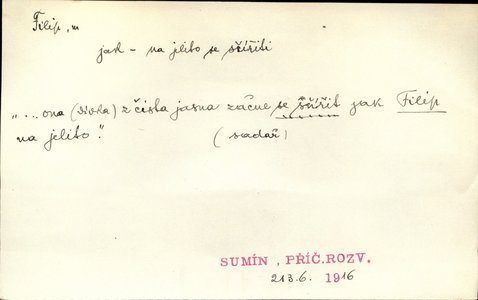 Filip, m
jak – na jelito se šířiti
„... ona (dívka) z čista jasna začne se šířit jak Filip
na jelito."
SUMÍN, PŘÍČ.ROZV.
213.6. 1916